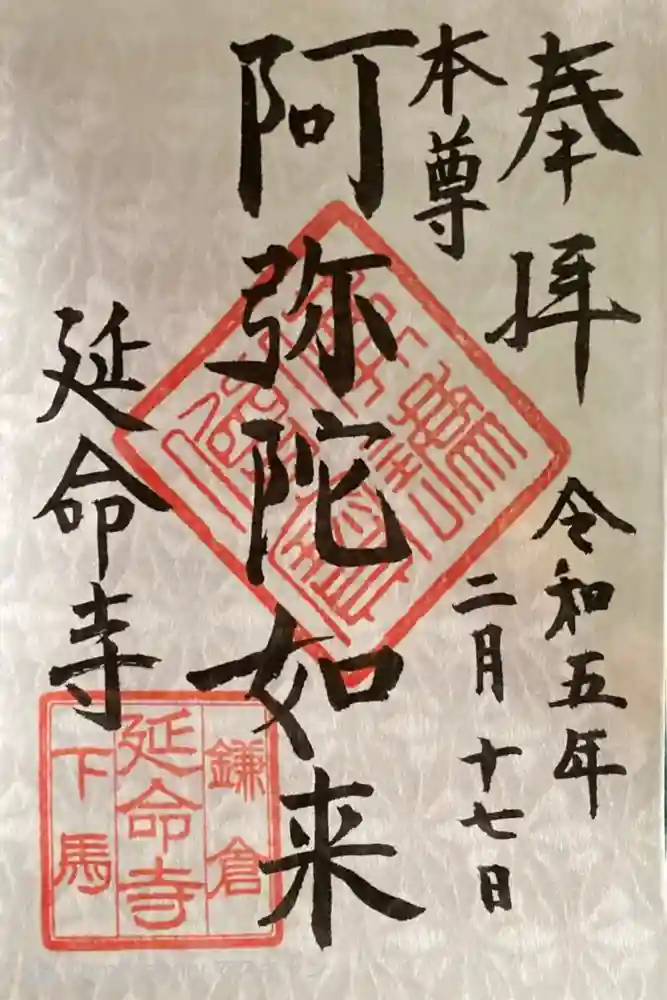 奉拝
令和五年
二月十七日
本尊
阿弥陀如来
延命寺
鎌倉
延命寺
下馬